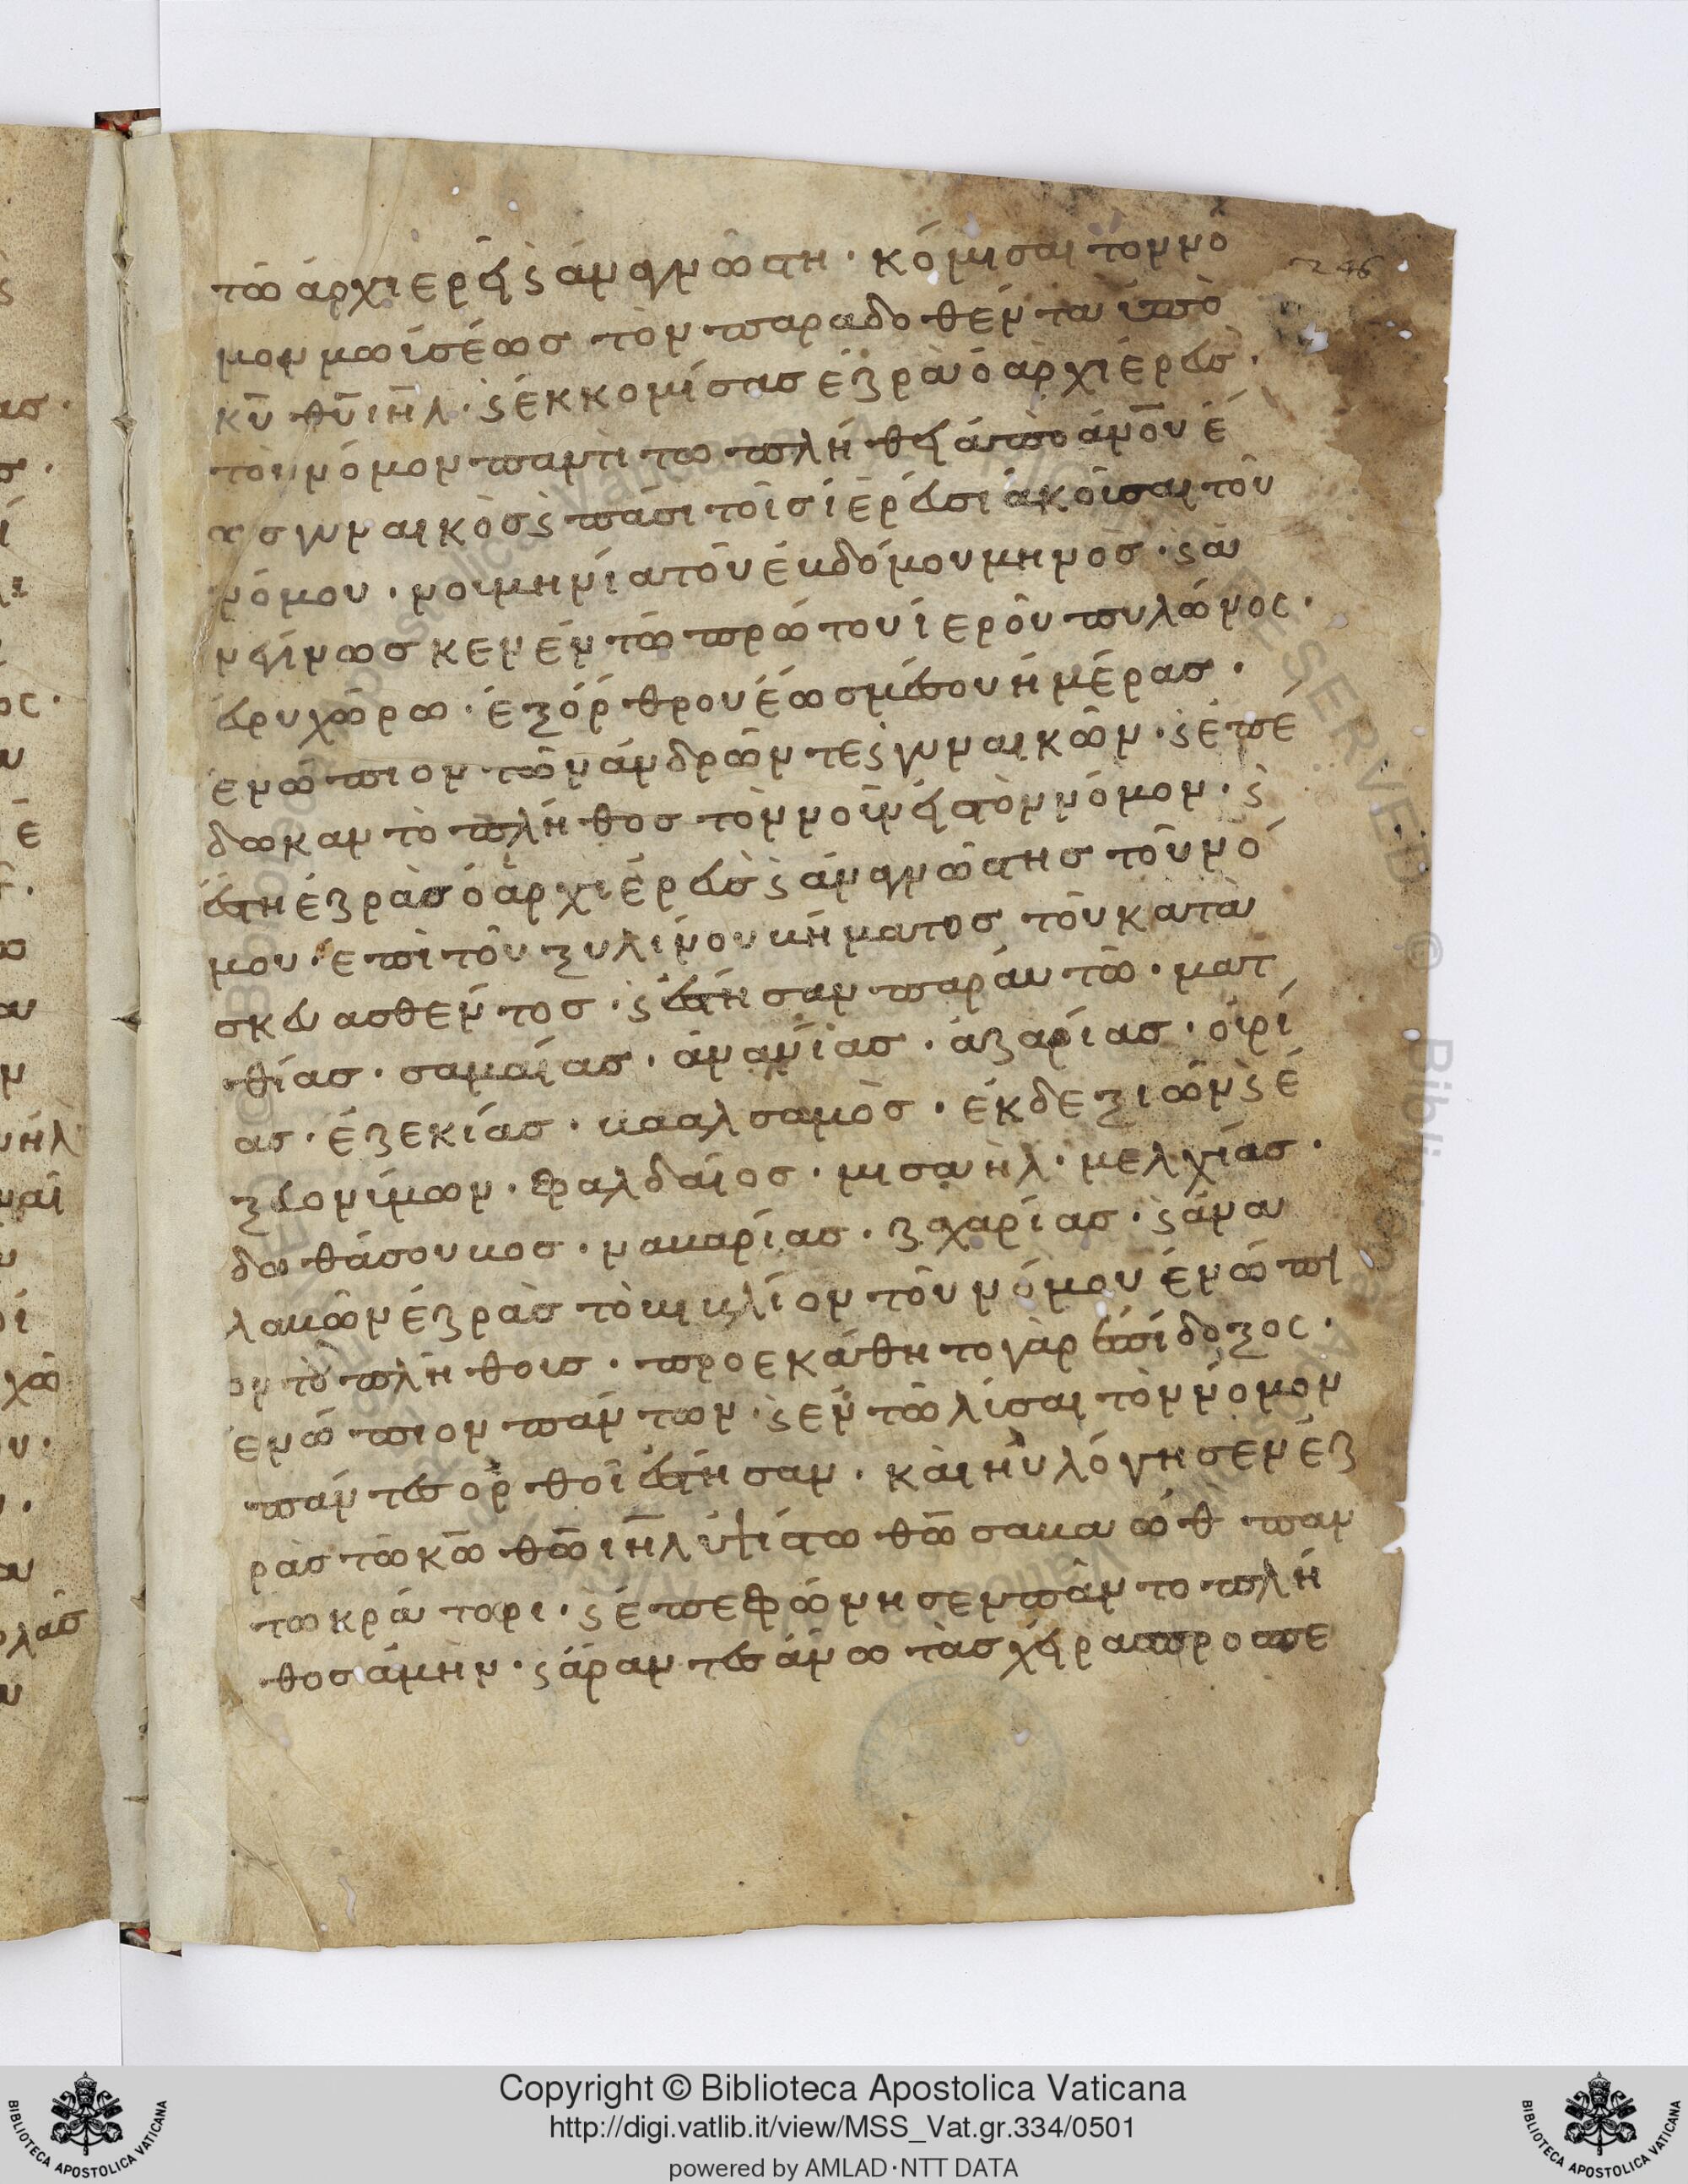 τῶ ἀρχιερεῖ ϛ ἀναγνώστη · κόμισαι τὸν νό
246
μον μωισέωσ τὸν παραδοθέντα ὑπὸ
κῡ θῡ ιη̄λ · ϛ ἐκκομίσασ ἔζρα ὁ ἀρχιερεὺσ ·
τὸν νόμον παντὶ τω πλήθει ἀπὸ ἀνο̄υ ἕ
ωσ γυναικὸσ ϛ πᾶσι τοῖσ ἱερεῦσι ἀκοῦσαι τοῦ
νόμου · νουμηνία τοῦ ἑβδόμου μηνὸσ · ϛ ἀ
νεγίνωσκεν ἐν τῶ πρώτου ἱεροῦ πυλώνος ·
εὐρυχώρω · ἐξ ὄρθρου ἕωσ μέσου ἡμέρασ ·
ἐνώπιον τῶν ἀνδρῶν τε ϛ γυναικῶν · ϛ ἐπέ
δωκαν τὸ πλήθοσ τὸν νοῦν εἰσ τὸν νόμον · ϛ
ἔστη ἐζρὰσ ὁ ἀρχιερεὺσ ϛ ἀναγνώστησ τοῦ νό
μου · ἐπὶ τοῦ ξυλίνου βήματοσ τοῦ κατα
σκευασθέντοσ · ϛ ἔστησαν παρ' αὐτῶ · ματ
θίασ · σαμαίασ · ἀνανίασ · ἀζαρίασ · οὐρί
ασ · ἐζεκίασ · βααλσαμὸσ · ἐκ δεξιῶν ϛ ἐ
ξ εὐονύμων · φαλδαίοσ · μισαὴλ · μελχίασ ·
δωθάσουβοσ · ναβαρίασ · ζαχαρίασ · ϛ ἀνα
λαβῶν ἐζρὰσ τὸ βιβλίον τοῦ νόμου ἐνώπι
ον τὸ πλήθουσ · προεκάθητο γὰρ ἐπιδόξος ·
ἐνώπιον πάντων · ϛ ἐν τῶ λύσαι τὸν νόμον
πάντεσ ὀρθοῖ ἔστησαν · καὶ ηὐλόγησεν ἐζ
ρὰσ τῶ κω̄ θω̄ ιη̄λ ὑψίστω θω̄ σαβαὼθ παν
τωκράτορι · ϛ ἐπεφώνησεν πᾶν το πλή
θοσ ἀμὴν · ϛ ἄραντεσ ἄνω τὰσ χεῖρασ προσπε
Copyright © Biblioteca Apostolica Vaticana
http://digi.vatlib.it/view/MSS_Vat.gr.334/0501
powered by AMLAD·NTT DATA